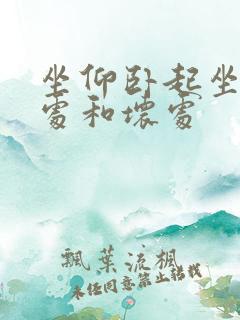 坐仰卧起坐
处和坏处
飘叶流枫
未经同意禁止转载